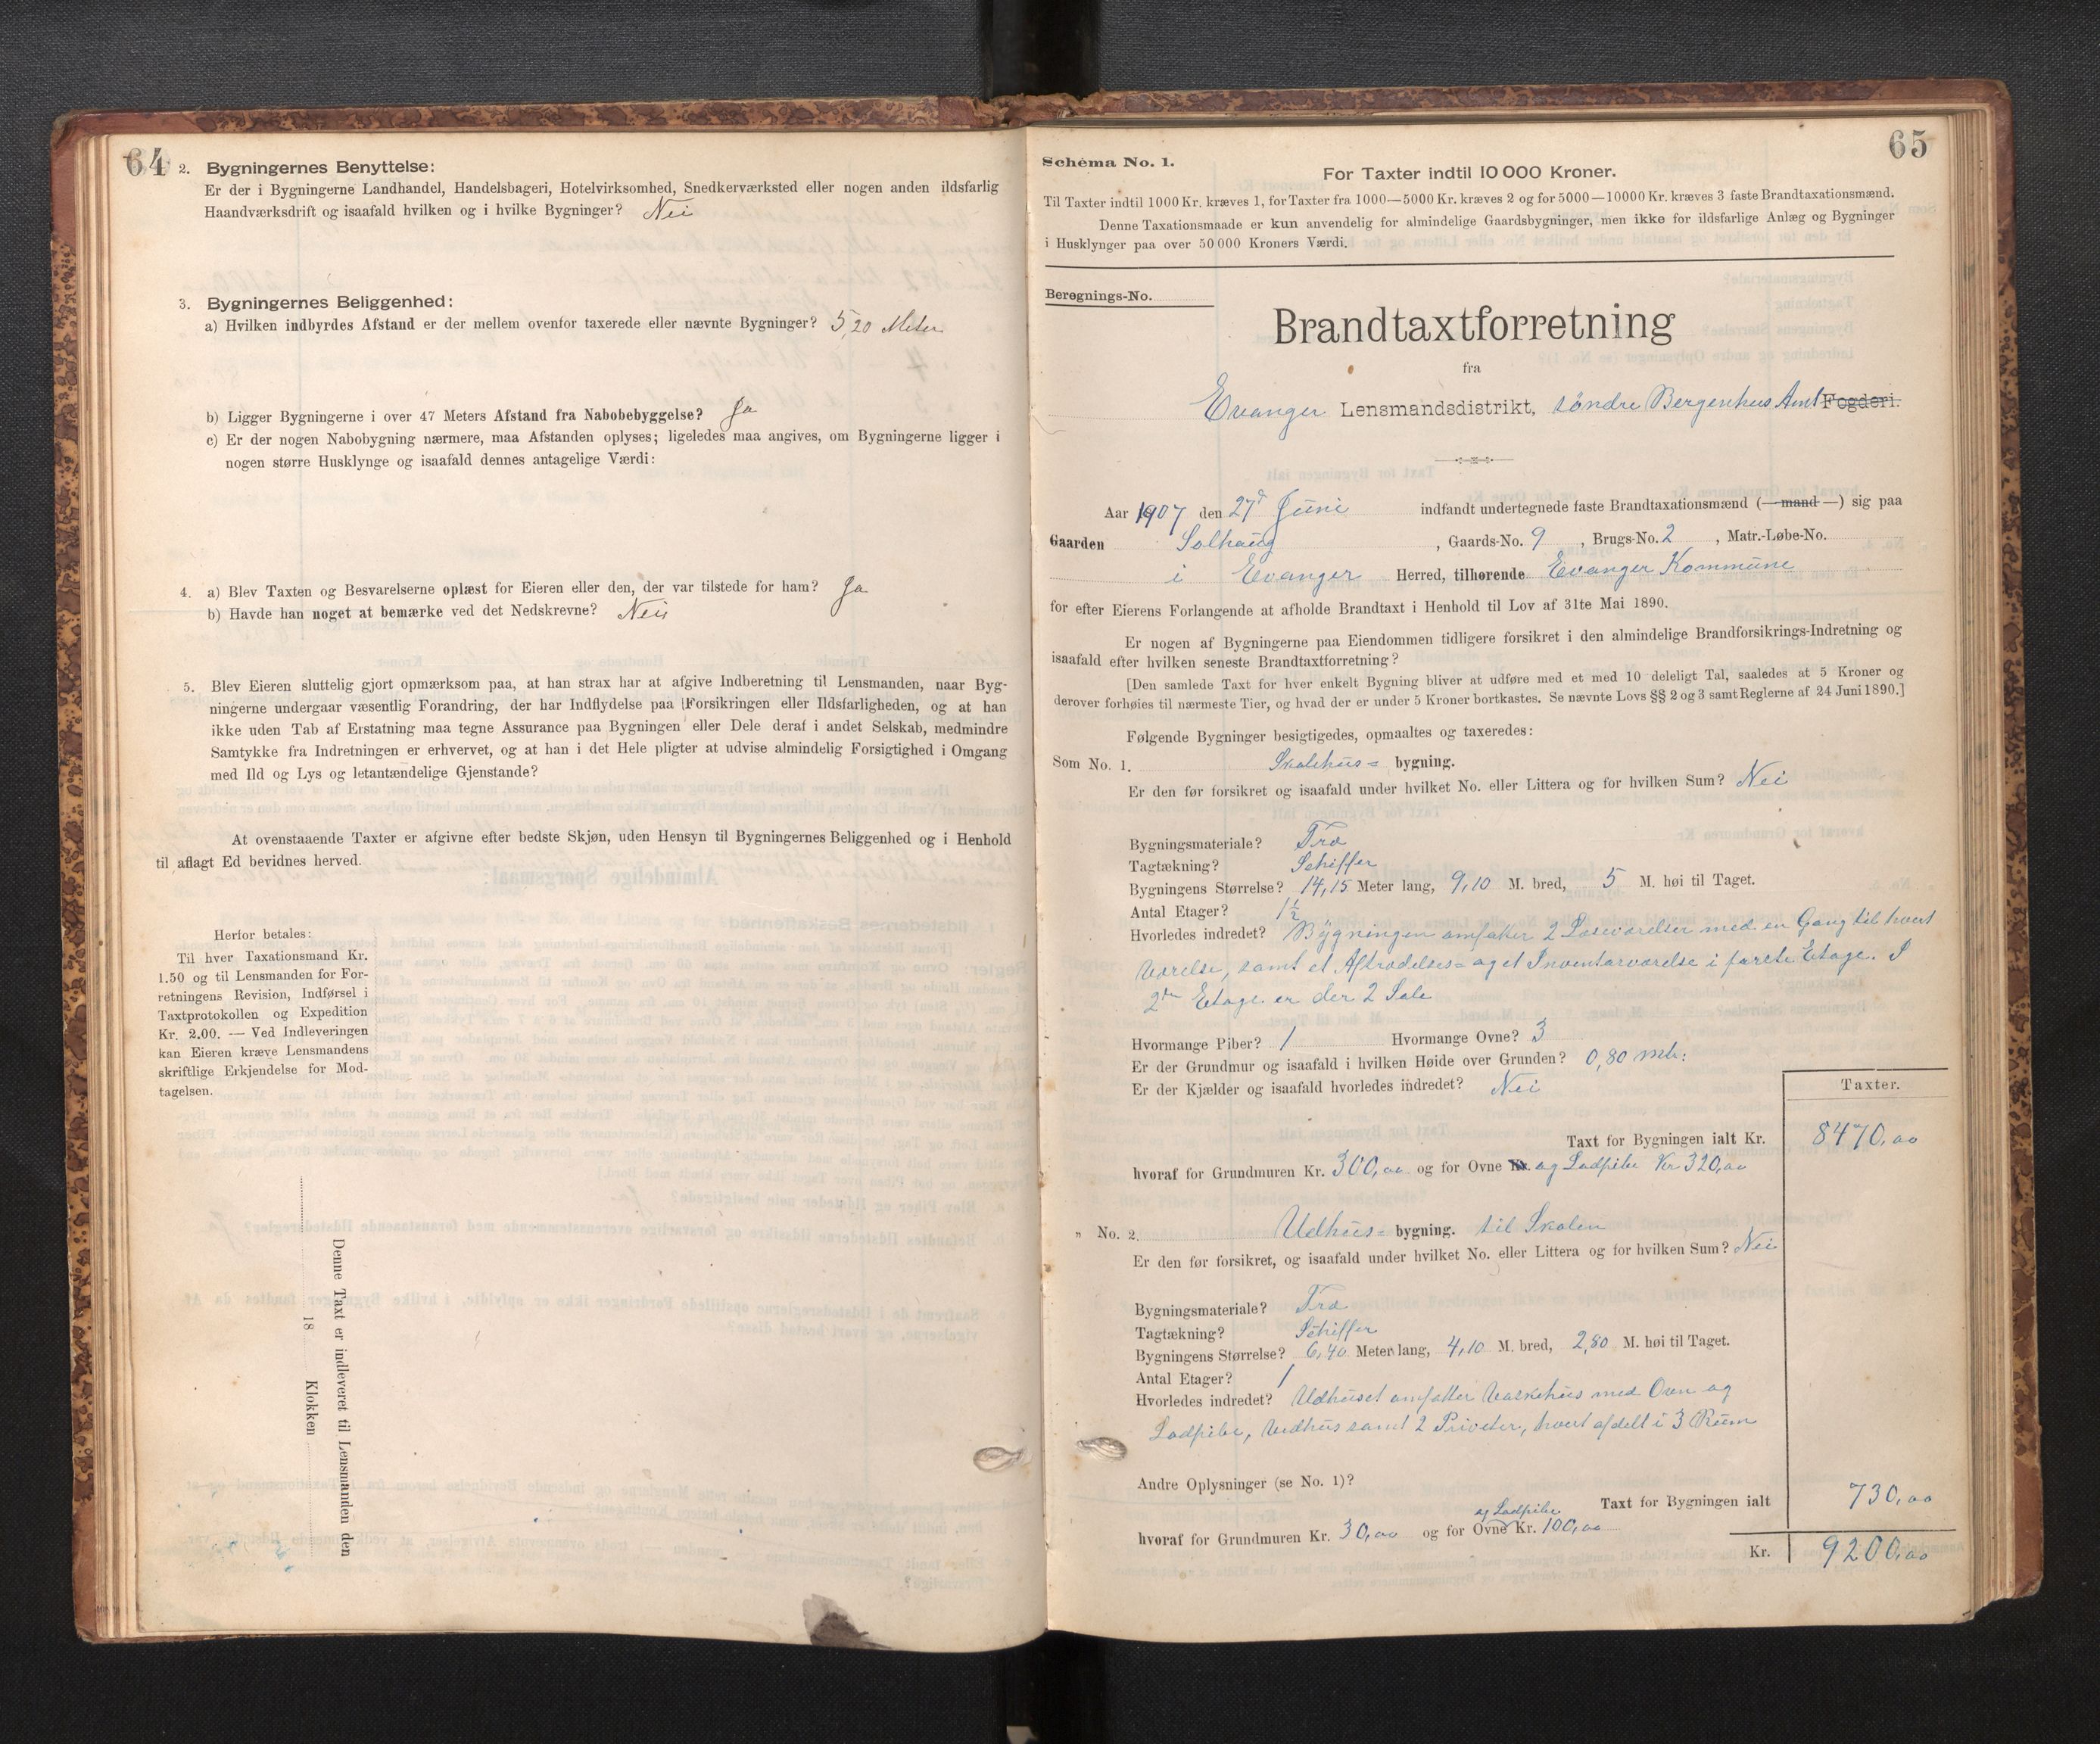 64
2. Bygningernes Benyttelse:
Er der i Bygningerne Landhandel, Handelsbageri, Hotelvirksomhed, Snedkerværksted eller nogen anden ildsfarlig
Haandværksdrift og isaafald hvilken og i hvilke Bygninger? Nei
3. Bygningernes Beliggenhed:
a) Hvilken indbyrdes Afstand er der mellem ovenfor taxerede eller nævnte Bygninger? 5,20 Meter
b) Ligger Bygningerne i over 47 Meters Afstand fra Nabobebyggelse? Ja
c) Er der nogen Nabobygning nærmere, maa Afstanden oplyses; ligeledes maa angives, om Bygningerne ligger i
nogen større Husklynge og isaafald dennes antagelige Værdi:
4. a) Blev Taxten og Besvarelserne oplæst for Eieren eller den, der var tilstede for ham? Ja
b) Havde han noget at bemærke ved det Nedskrevne? Nei
5. Blev Eieren sluttelig gjort opmærksom paa, at han strax har at afgive Indberetning til Lensmanden, naar Byg-
ningerne undergaar væsentlig Forandring, der har Indflydelse paa Forsikringen eller Ildsfarligheden, og at han
ikke uden Tab af Erstatning maa tegne Assurance paa Bygningen eller Dele deraf i andet Selskab, medmindre
Samtykke fra Indretningen er erhvervet, og at han i det Hele pligter at udvise almindelig Forsigtighed i Omgang
med Ild og Lys og letantændelige Gjenstande?
At ovenstaaende Taxter er afgivne efter bedste Skjøn, uden Hensyn til Bygningernes Beliggenhed og i Henhold
til aflagt Ed bevidnes herved.
Herfor betales:
Til hver Taxationsmand Kr.
1.50 og til Lensmanden for For-
retningens Revision, Indførsel i
Taxtprotokollen og Expedition
Kr. 2.00. — Ved Indleveringen
kan Eieren kræve Lensmandens
skriftlige Erkjendelse for Mod-
tagelsen.
Denne Taxt er indleveret til Lensmanden den
18 Klokken
65
Schema No. 1.
For Taxter indtil 10 000 Kroner.
Til Taxter indtil 1000 Kr. kræves 1, for Taxter fra 1000—5000 Kr. kræves 2 og for 5000—10000 Kr. kræves 3 faste Brandtaxationsmænd.
Denne Taxationsmaade er kun anvendelig for almindelige Gaardsbygninger, men ikke for ildsfarlige Anlæg og Bygninger
i Husklynger paa over 50 000 Kroners Værdi.
Beregnings-No.
Brandtaxtforretning
fra
Evanger Lensmandsdistrikt, søndre Bergenhus Amt Fogderi.
Aar 1907 den 27d Juni indfandt undertegnede faste Brandtaxationsmænd (—mand—) sig paa
Gaarden Solhaug, Gaards-No. 9, Brugs-No. 2, Matr.-Løbe-No.
i Evanger Herred, tilhørende Evanger Kommune
for efter Eierens Forlangende at afholde Brandtaxt i Henhold til Lov af 31te Mai 1890.
Er nogen af Bygningerne paa Eiendommen tidligere forsikret i den almindelige Brandforsikrings-Indretning og
isaafald efter hvilken seneste Brandtaxtforretning?
[Den samlede Taxt for hver enkelt Bygning bliver at udføre med et med 10 deleligt Tal, saaledes at 5 Kroner og
derover forhøies til nærmeste Tier, og hvad der er under 5 Kroner bortkastes. Se nævnte Lovs §§ 2 og 3 samt Reglerne af 24 Juni 1890.]
Følgende Bygninger besigtigedes, opmaaltes og taxeredes:
Som No. 1. Skolehus= bygning.
Er den før forsikret og isaafald under hvilket No. eller Littera og for hvilken Sum? Nei
Bygningsmateriale? Træ
Tagtækning? Schiffer
Bygningens Størrelse? 14,15 Meter lang, 9,10 M. bred, 5 M. høi til Taget.
Antal Etager? 1½
Hvorledes indredet? Bygningen omfatter 2 Læseværelser med en Gang til hvert
Værelse, samt et Aftrædelses= og et Inventarværelse i første Etage. I
2den Etage er der 2 Sale
Hvormange Piber? 1 Hvormange Ovne? 3
Er der Grundmur og isaafald i hvilken Høide over Grunden? 0,80 mtr:
Er der Kjælder og isaafald hvorledes indredet? Nei
Taxter.
Taxt for Bygningen ialt Kr. 8470,00
hvoraf for Grundmuren Kr. 300,00 og for Ovne Kr. og Ladpibe Kr 320,00
" No. 2. Udhus= bygning. til Skolen
Er den før forsikret, og isaafald under hvilket No. eller Littera og for hvilken Sum? Nei
Bygningsmateriale? Træ
Tagtækning? Schiffer
Bygningens Størrelse? 6,40 Meter lang, 4,10 M. bred, 2,80 M. høi til Taget.
Antal Etager? 1
Hvorledes indredet? Udhuset omfatter Vaskehus med Ovn og
Ladpibe, Vedhus samt 2 Priveter, hvert afdelt i 3 Rum
Andre Oplysninger (se No. 1)?
Taxt for Bygningen ialt 730,00
og Ladpibe
hvoraf for Grundmuren Kr. 30,00 og for Ovne Kr. 100,00
Kr. 9200,00